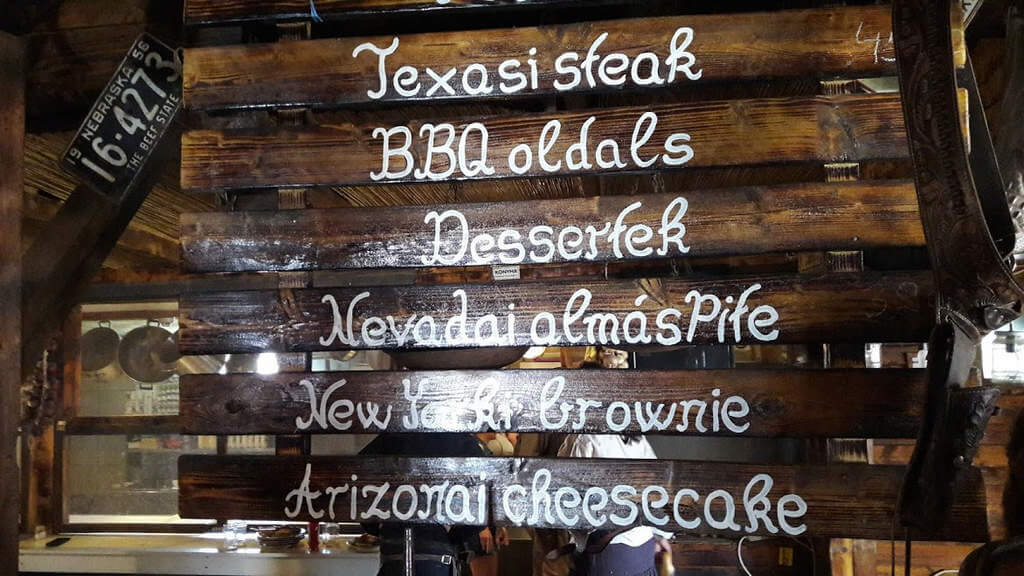 Texasi steak
BBQ oldals
Dessertek
KONYHA
Nevadai almás Pite
New Yorki brownie
Arizonai cheesecake
19 NEBRASKA 56
16·4273
THE BEEF STATE